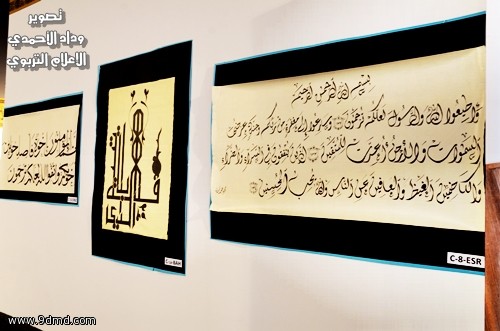 تصوير
وداد الاحمدي
الاعلام التربوي
بسم الله الرحمن الرحيم
وأطيعوا الله والرسول لعلكم ترحمون وسارعوا إلى مغفرة من ربكم وجنة عرضها
السموات والأرض أعدت للمتقين الذين ينفقون في السراء والضراء
والكاظمين الغيظ والعافين عن الناس والله يحب المحسنين
C-8-ESR
المؤمنون إخوة فأصلحوا بين
أخويكم واتقوا الله لعلكم ترحمون
www.9dmd.com